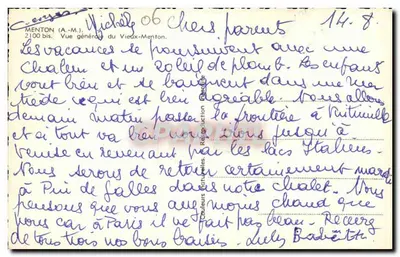 Michèle 06 Chers parents 14.8
MENTON (A.-M.).
2100 bis. Vue générale du Vieux-Menton.
Les vacances se poursuivent avec une
chaleur et un soleil de plomb. Les enfants
vont bien et se baignent dans une mer
tiède ce qui est bien agréable. Nous allons
demain matin passer la frontière à Vintimille
et si tout va bien nous irons jusqu'à
Venise en revenant par les lacs Italiens.
Nous serons de retour certainement mardi
à Pin de galles dans notre chalet. Nous
pensons que vous avez moins chaud que
nous car à Paris il ne fait pas beau. Recevez
de tous trois nos bons baisers.